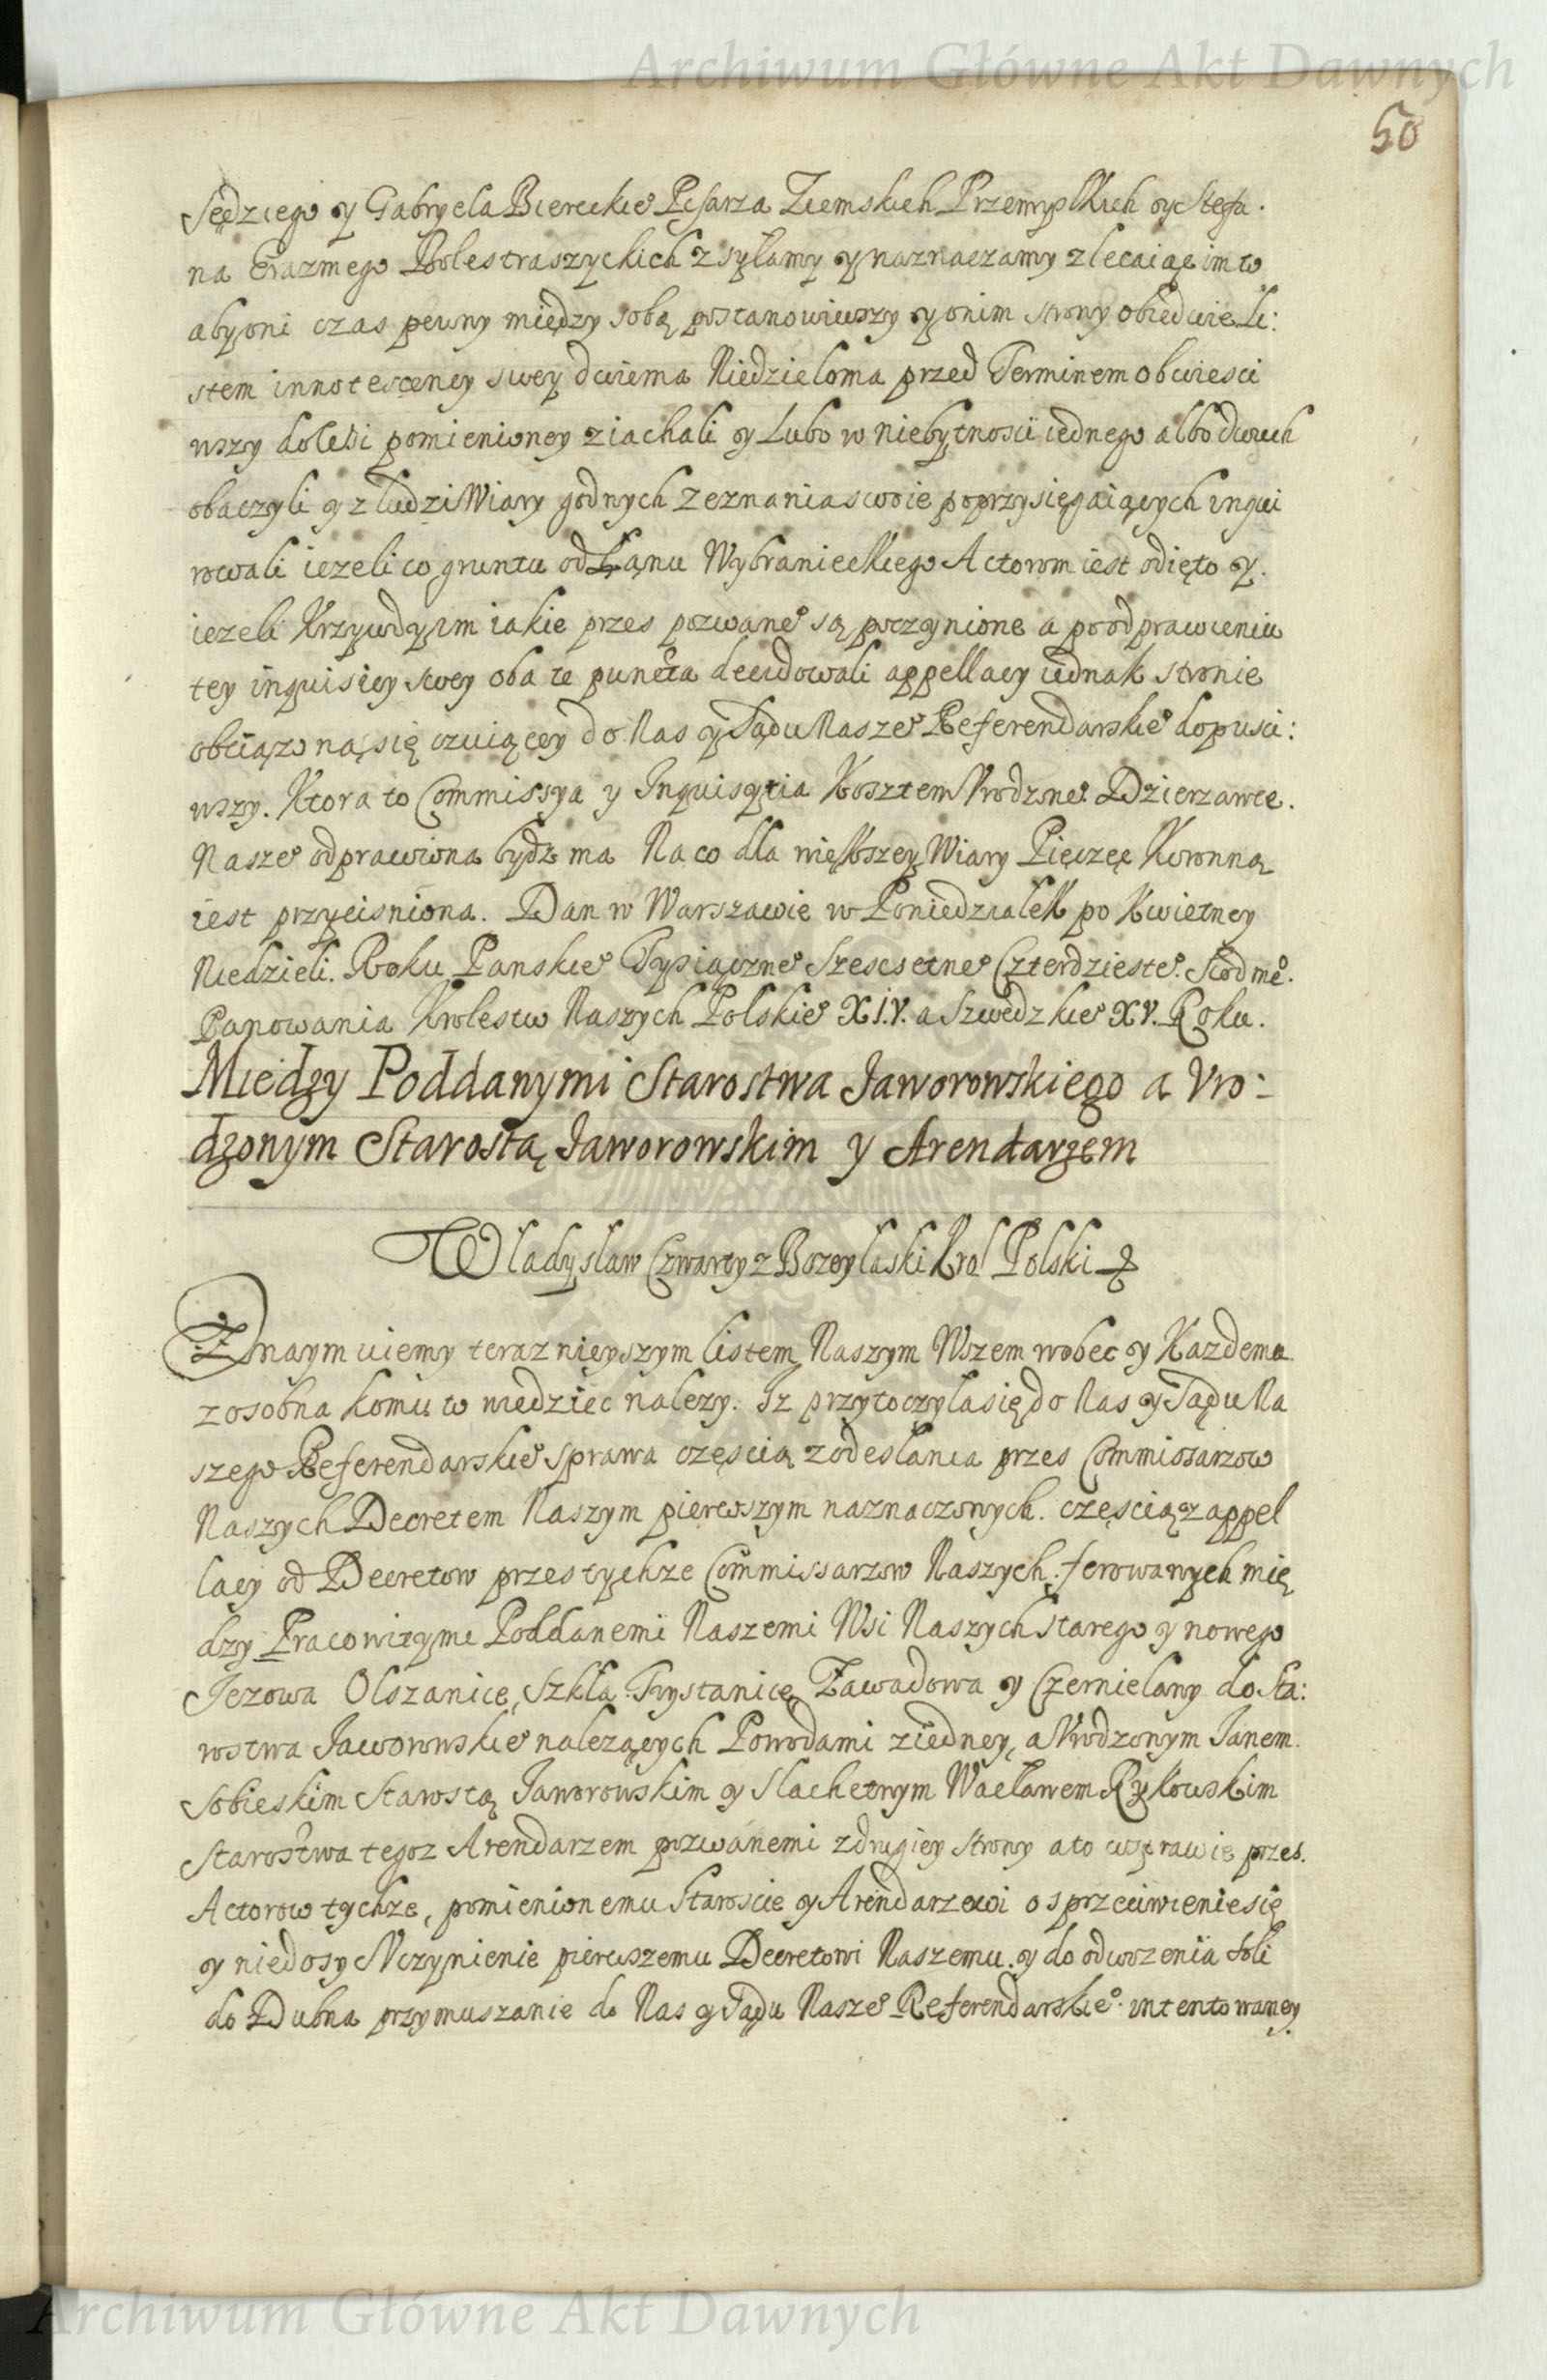 Archiwum Główne Akt Dawnych
50
Sędziego y Gabryela Biereckie° Pisarza Ziemskich Przemyslkich y Stefa.
na Erazmego Bolestraszyckich zsyłamy y naznaczamy zlecaiąc im to
aby oni czas pewny między sobą postanowiwszy y onim strony obiedwie Li:
stem innotescency swey dwiema Niedzieloma przed Terminem obwiesci
wszy do Wsi pomienioney ziachali y Lubo w niebytnosci iednego albo dwuch
obaczyli y z ludzi Wiary godnych zeznania swoie poprzysięgaiących inqui
rowali iezeli co gruntu od Łanu Wybranieckiego Actorom iest odięto y.
iezeli Krzywdy im iakie przes pozwane° są poczynione a po odprawieniu
tey inquisicy swey oba te puncta decidowali appellacy iednak stronie
obciązoną się czuiącey do Nas y Sądu Nasze° Referendarskie° dopusci:
wszy. Ktora to Commissya y Inquisytia Kosztem Vrodzone° Dzierzawce.
Nasze° odprawiona bydz ma Na co dla większey Wiary Pięczęc Koronną
iest przycisniona. Dan w Warszawie w Poniedziałek po Kwietney
Niedzieli. Roku Panskie° Tysiączne° Szescsetne° Czterdzieste°. Siodme°.
Panowania Krolestw Naszych Polskie° XIV. a Szwedzkie° XV. Roku.
Między Poddanymi Starostwa Jaworowskiego a Vro:
dzonym Starostą Jaworowskim y Arendarzem
Wladyslaw Czwarty z Bozey laski Krol Polski &
Znaymuiemy teraznieyszym listem Naszym Wszem wobec y Kazdemu.
zosobna komu to wiedziec nalezy. Iz przytoczyla się do Nas y Sądu Na
szego Referendarskie° sprawa częscią zodeslania przes Commissarzow
Naszych Decretem Naszym pierwszym naznaczonych. częscią z appel
lacy od Decretow przes tychze Commissarzow Naszych. ferowanych mię
dzy Pracowitymi Poddanemi Naszemi Wsi Naszych starego y nowego
Jezowa Olszanice, Szkła Trystanice, Zawadowa y Czernielany do Sta:
rostwa Jaworowskie° nalezących Powodami ziedney, a Vrodzonym Janem.
Sobieskim Starostą Jaworowskim y Slachetnym Wacławem Rykowskim
Starostwa tegoz Arendarzem pozwanemi zdrugiey strony a to wsprawie przes.
Actorow tychze, pomienionemu Staroscie y Arendarzewi o sprzeciwienie się
y niedosyc Vczynienie pierwszemu Decretowi Naszemu. y do odwozenia soli
do Dubna przymuszanie do Nas y Sądu Nasze° Referendarskie° intentowaney
Archiwum Główne Akt Dawnych